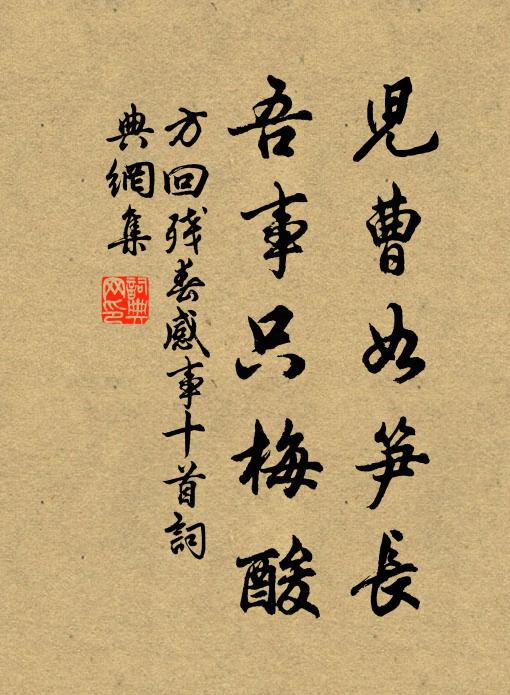 兒曹如笋長
吾事只梅酸
方回残春感事十首詞
典網集
詞典
网印